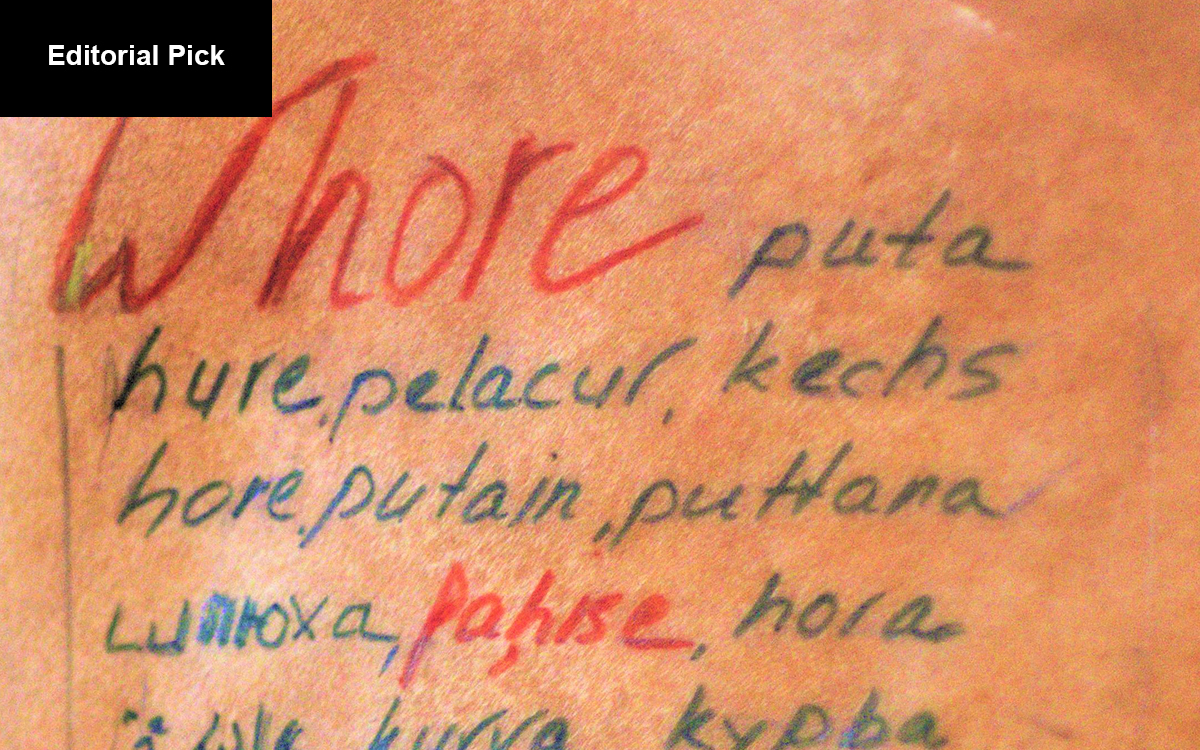 Editorial Pick
Whore puta
hure, pelacur, kechs
hore, putain, puttana
шлюха, fahişe, hora
kurva курва